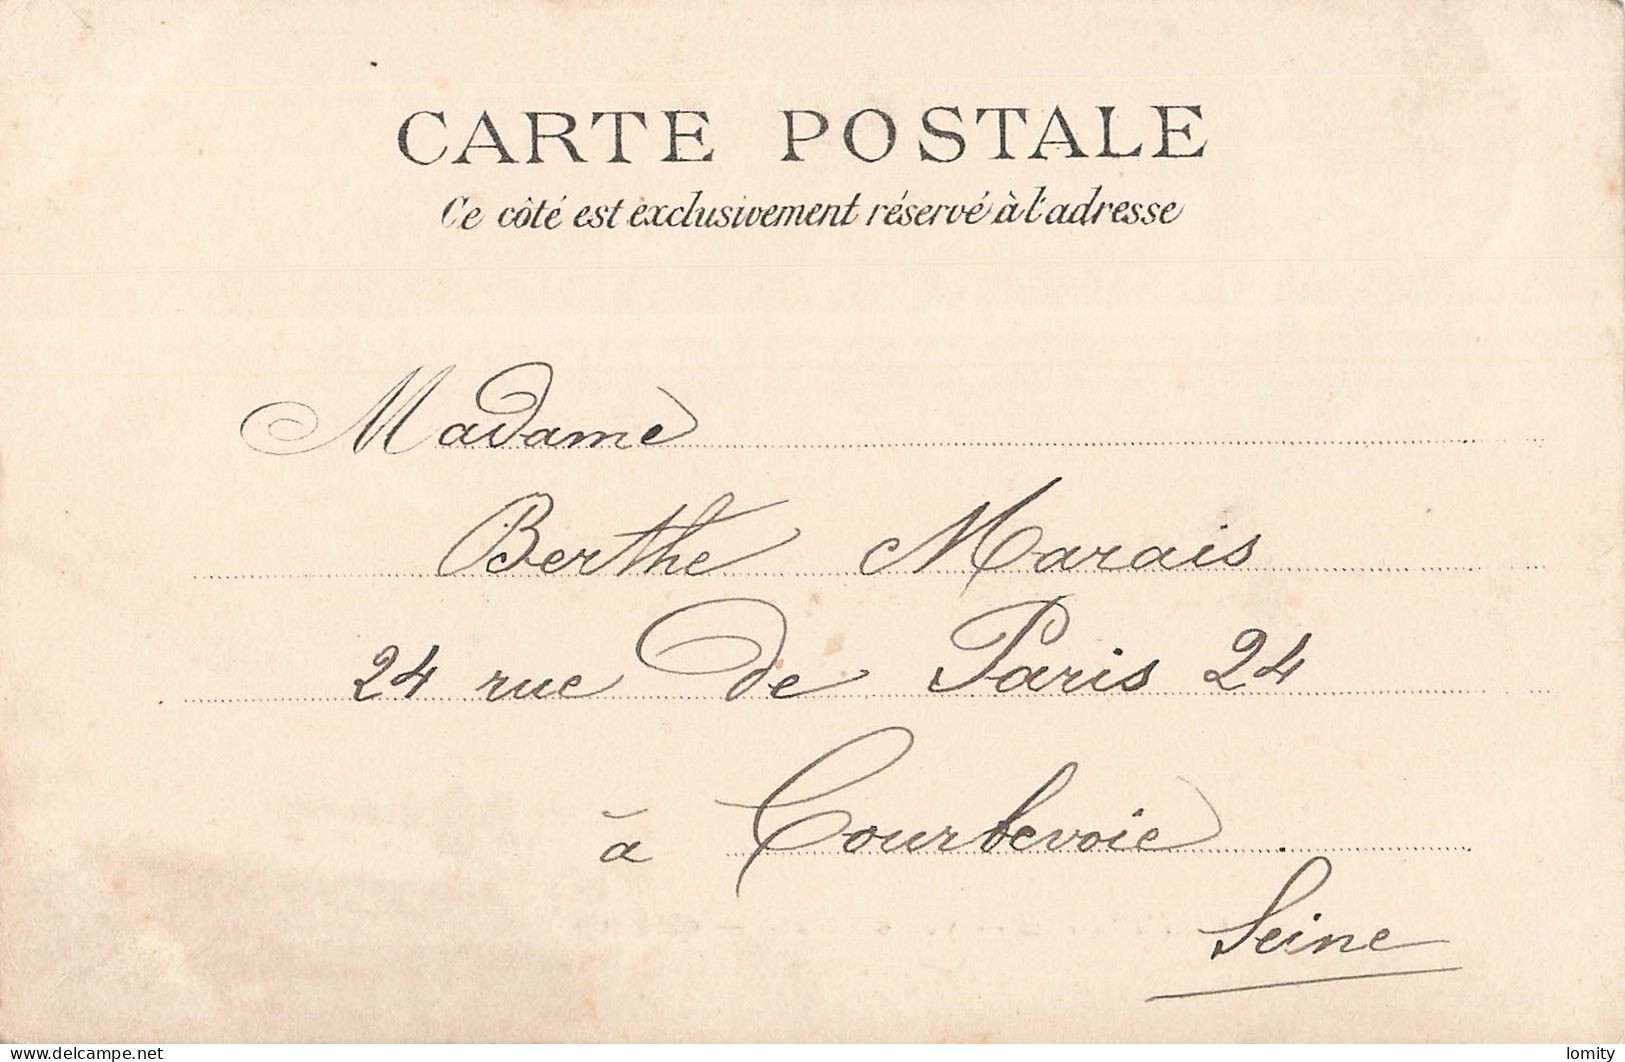 CARTE POSTALE
Ce côté est exclusivement réservé à l'adresse
Madame
Berthe Marais
24 rue de Paris 24
à Courbevoie
Seine
www.delcampe.net
lomity